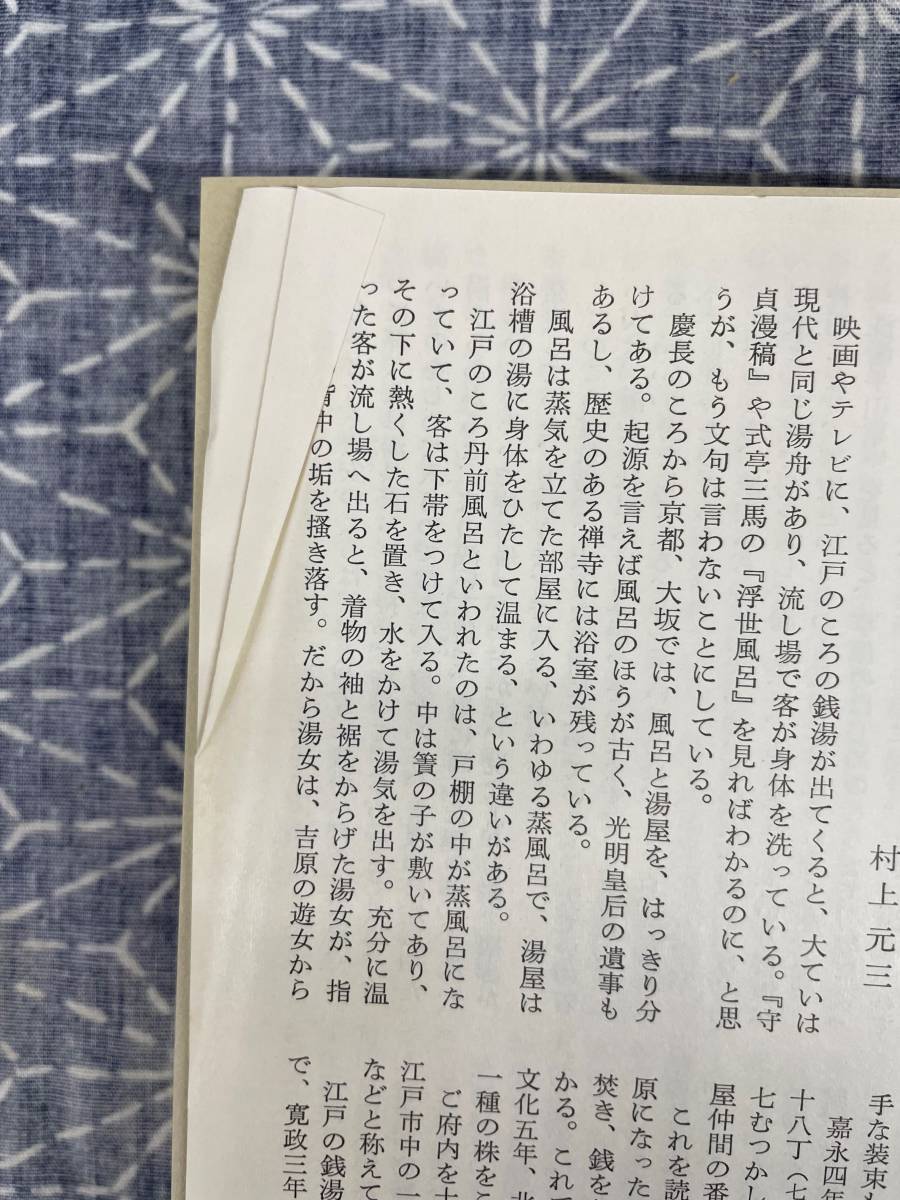 村上元三
映画やテレビに、江戸のころの銭湯が出てくると、大ていは
現代と同じ湯舟があり、流し場で客が身体を洗っている。『守
貞漫稿』や式亭三馬の『浮世風呂』を見ればわかるのに、と思
うが、もう文句は言わないことにしている。
慶長のころから京都、大坂では、風呂と湯屋を、はっきり分
けてある。起源を言えば風呂のほうが古く、光明皇后の遺事も
あるし、歴史のある禅寺には浴室が残っている。
風呂は蒸気を立てた部屋に入る、いわゆる蒸風呂で、湯屋は
浴槽の湯に身体をひたして温まる、という違いがある。
江戸のころ丹前風呂といわれたのは、戸棚の中が蒸風呂にな
っていて、客は下帯をつけて入る。中は簀の子が敷いてあり、
その下に熱くした石を置き、水をかけて湯気を出す。充分に温
った客が流し場へ出ると、着物の袖と裾をからげた湯女が、指
背中の垢を掻き落す。だから湯女は、吉原の遊女から
手な装束
嘉永四年
十八丁(七
七むつかし
屋仲間の番
これを読
原になった
焚き、銭を
かる。これ
文化五年、北
一種の株をこ
ご府内を十
江戸市中の一
などと称えて
江戸の銭湯
で、寛政三年